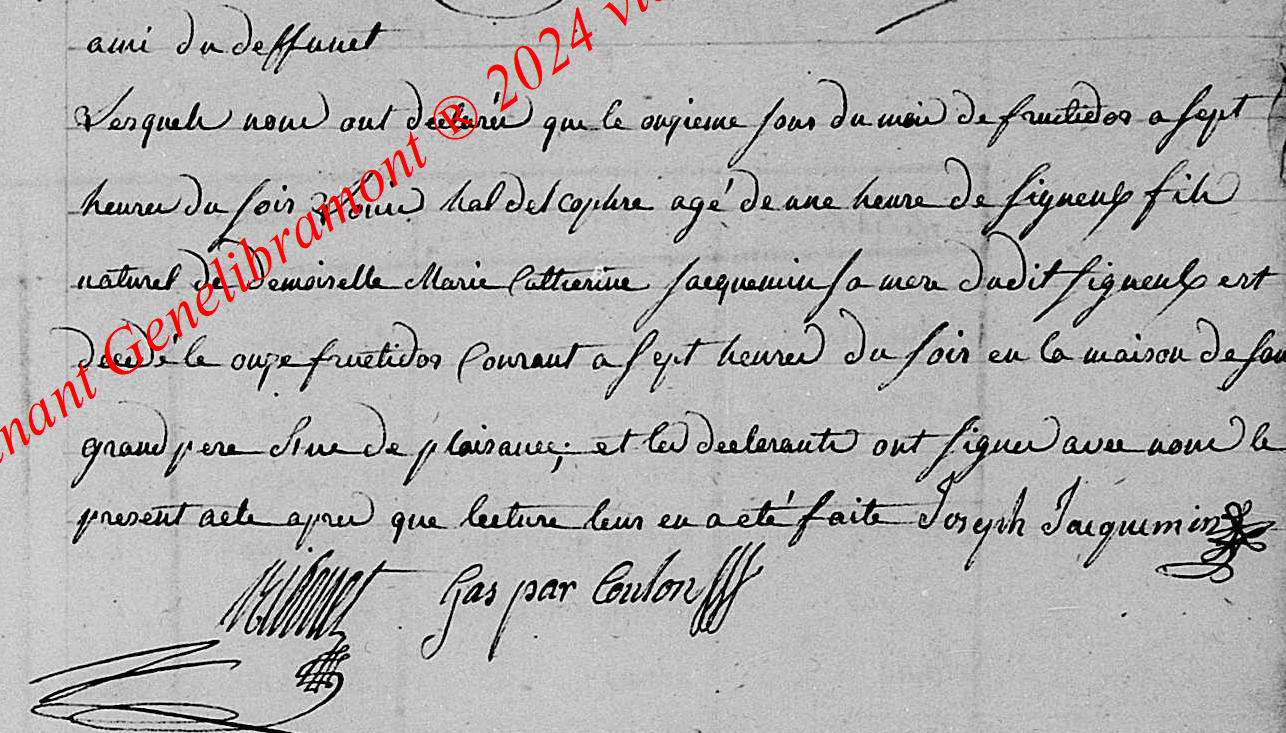 ami du deffunct
lesquels nous ont declaré que le onzieme jour du mois de fructidor a sept
heures du soir hal del cophre agé de une heure de Signeulx fils
naturel de Demoiselle Marie Catherine Jacquemin sa mere dudit Signeulx est
decedé le onze fructidor Courant a sept heures du soir en la maison de son
grand pere de plaisance; et les declarants ont signer avec nous le
present acte apres que lecture leur en a eté faite Joseph Jacquemin
Gaspar Coulon
nant Genelibramont ® 2024 via